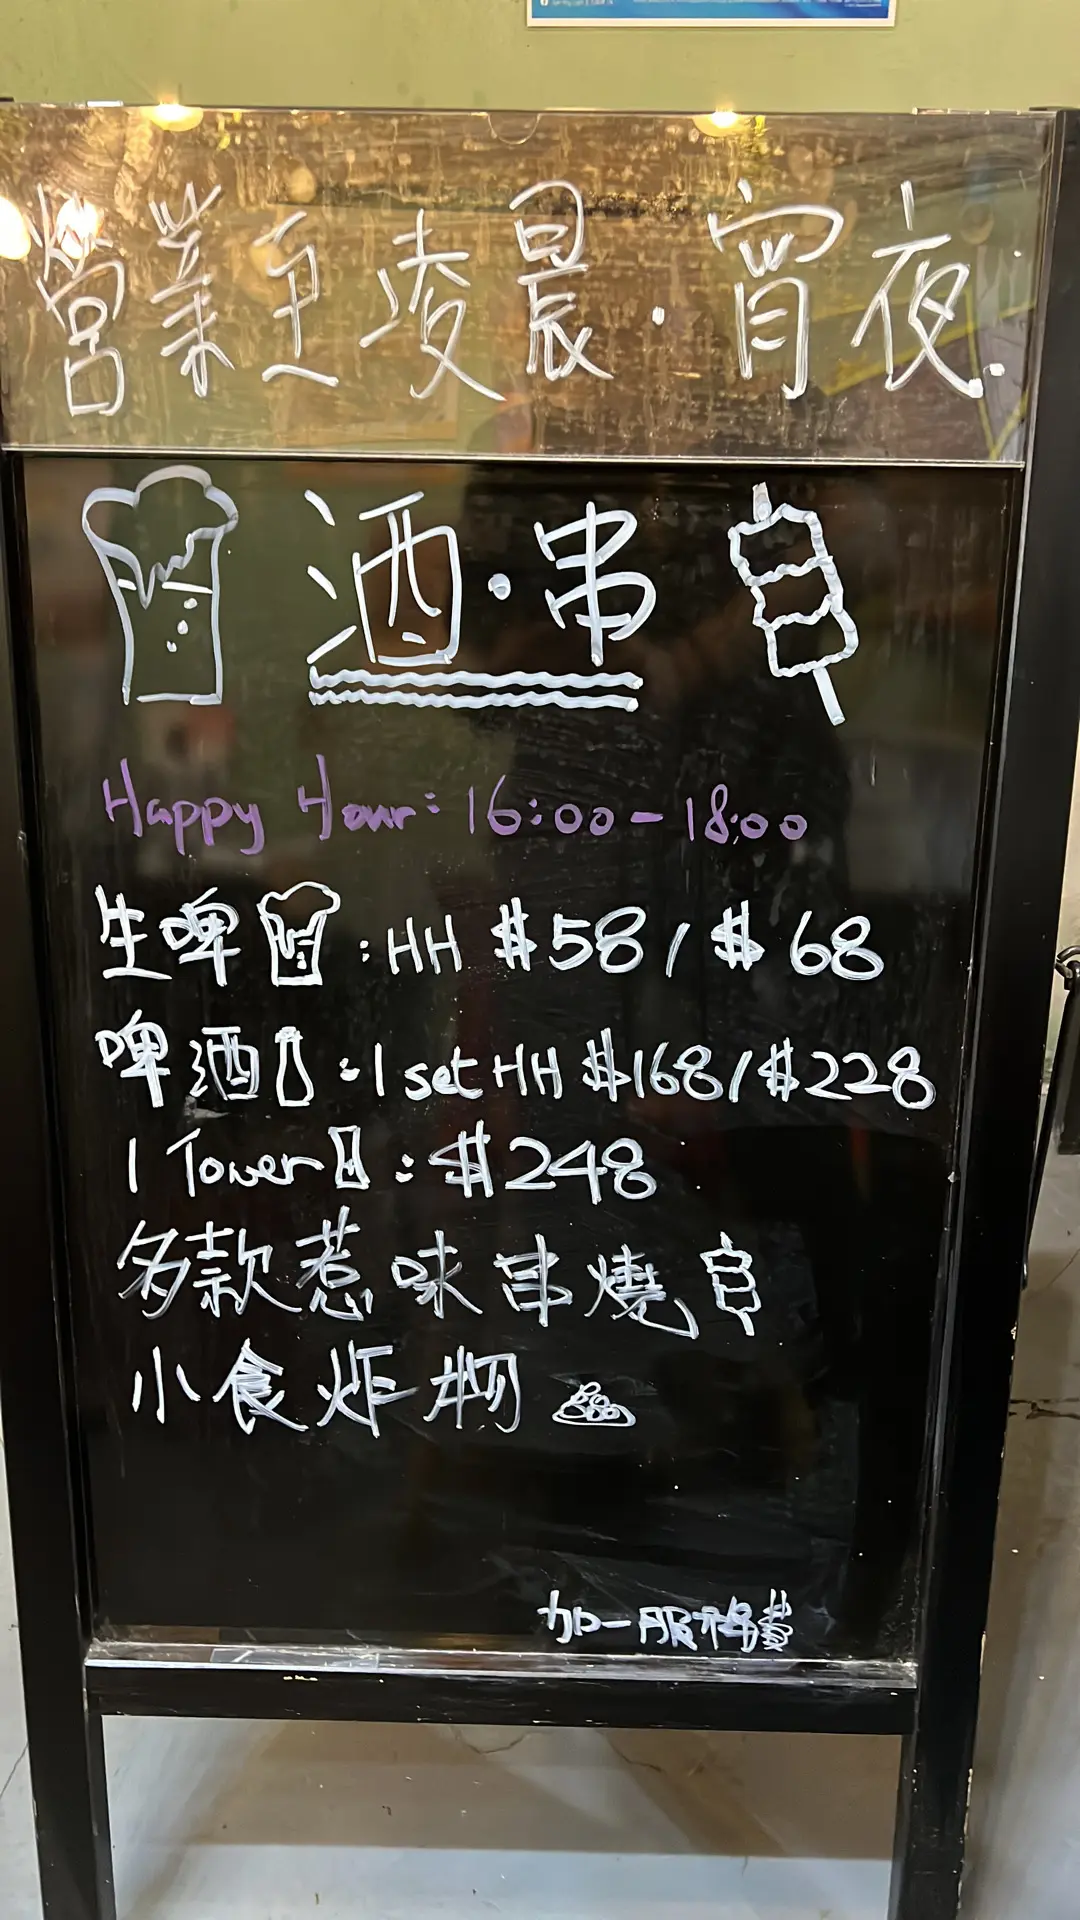 營業至凌晨·宵夜
酒·串
Happy Hour: 16:00-18:00
生啤:HH $58/$68
啤酒:1 set HH $168/$228
1 Tower:$248
多款惹味串燒
小食炸物
加一服務費